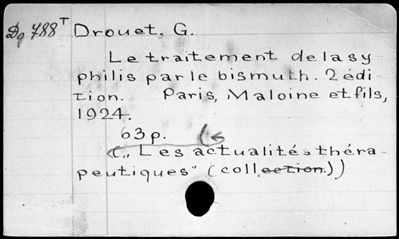 Dg 788T Drouet, G.
Le traitement de la sy
philis par le bismuth. 2 édi
tion. Paris, Maloine et fils,
1924.
63 p.
(„ Les actualités théra
peutiques" (collection.))